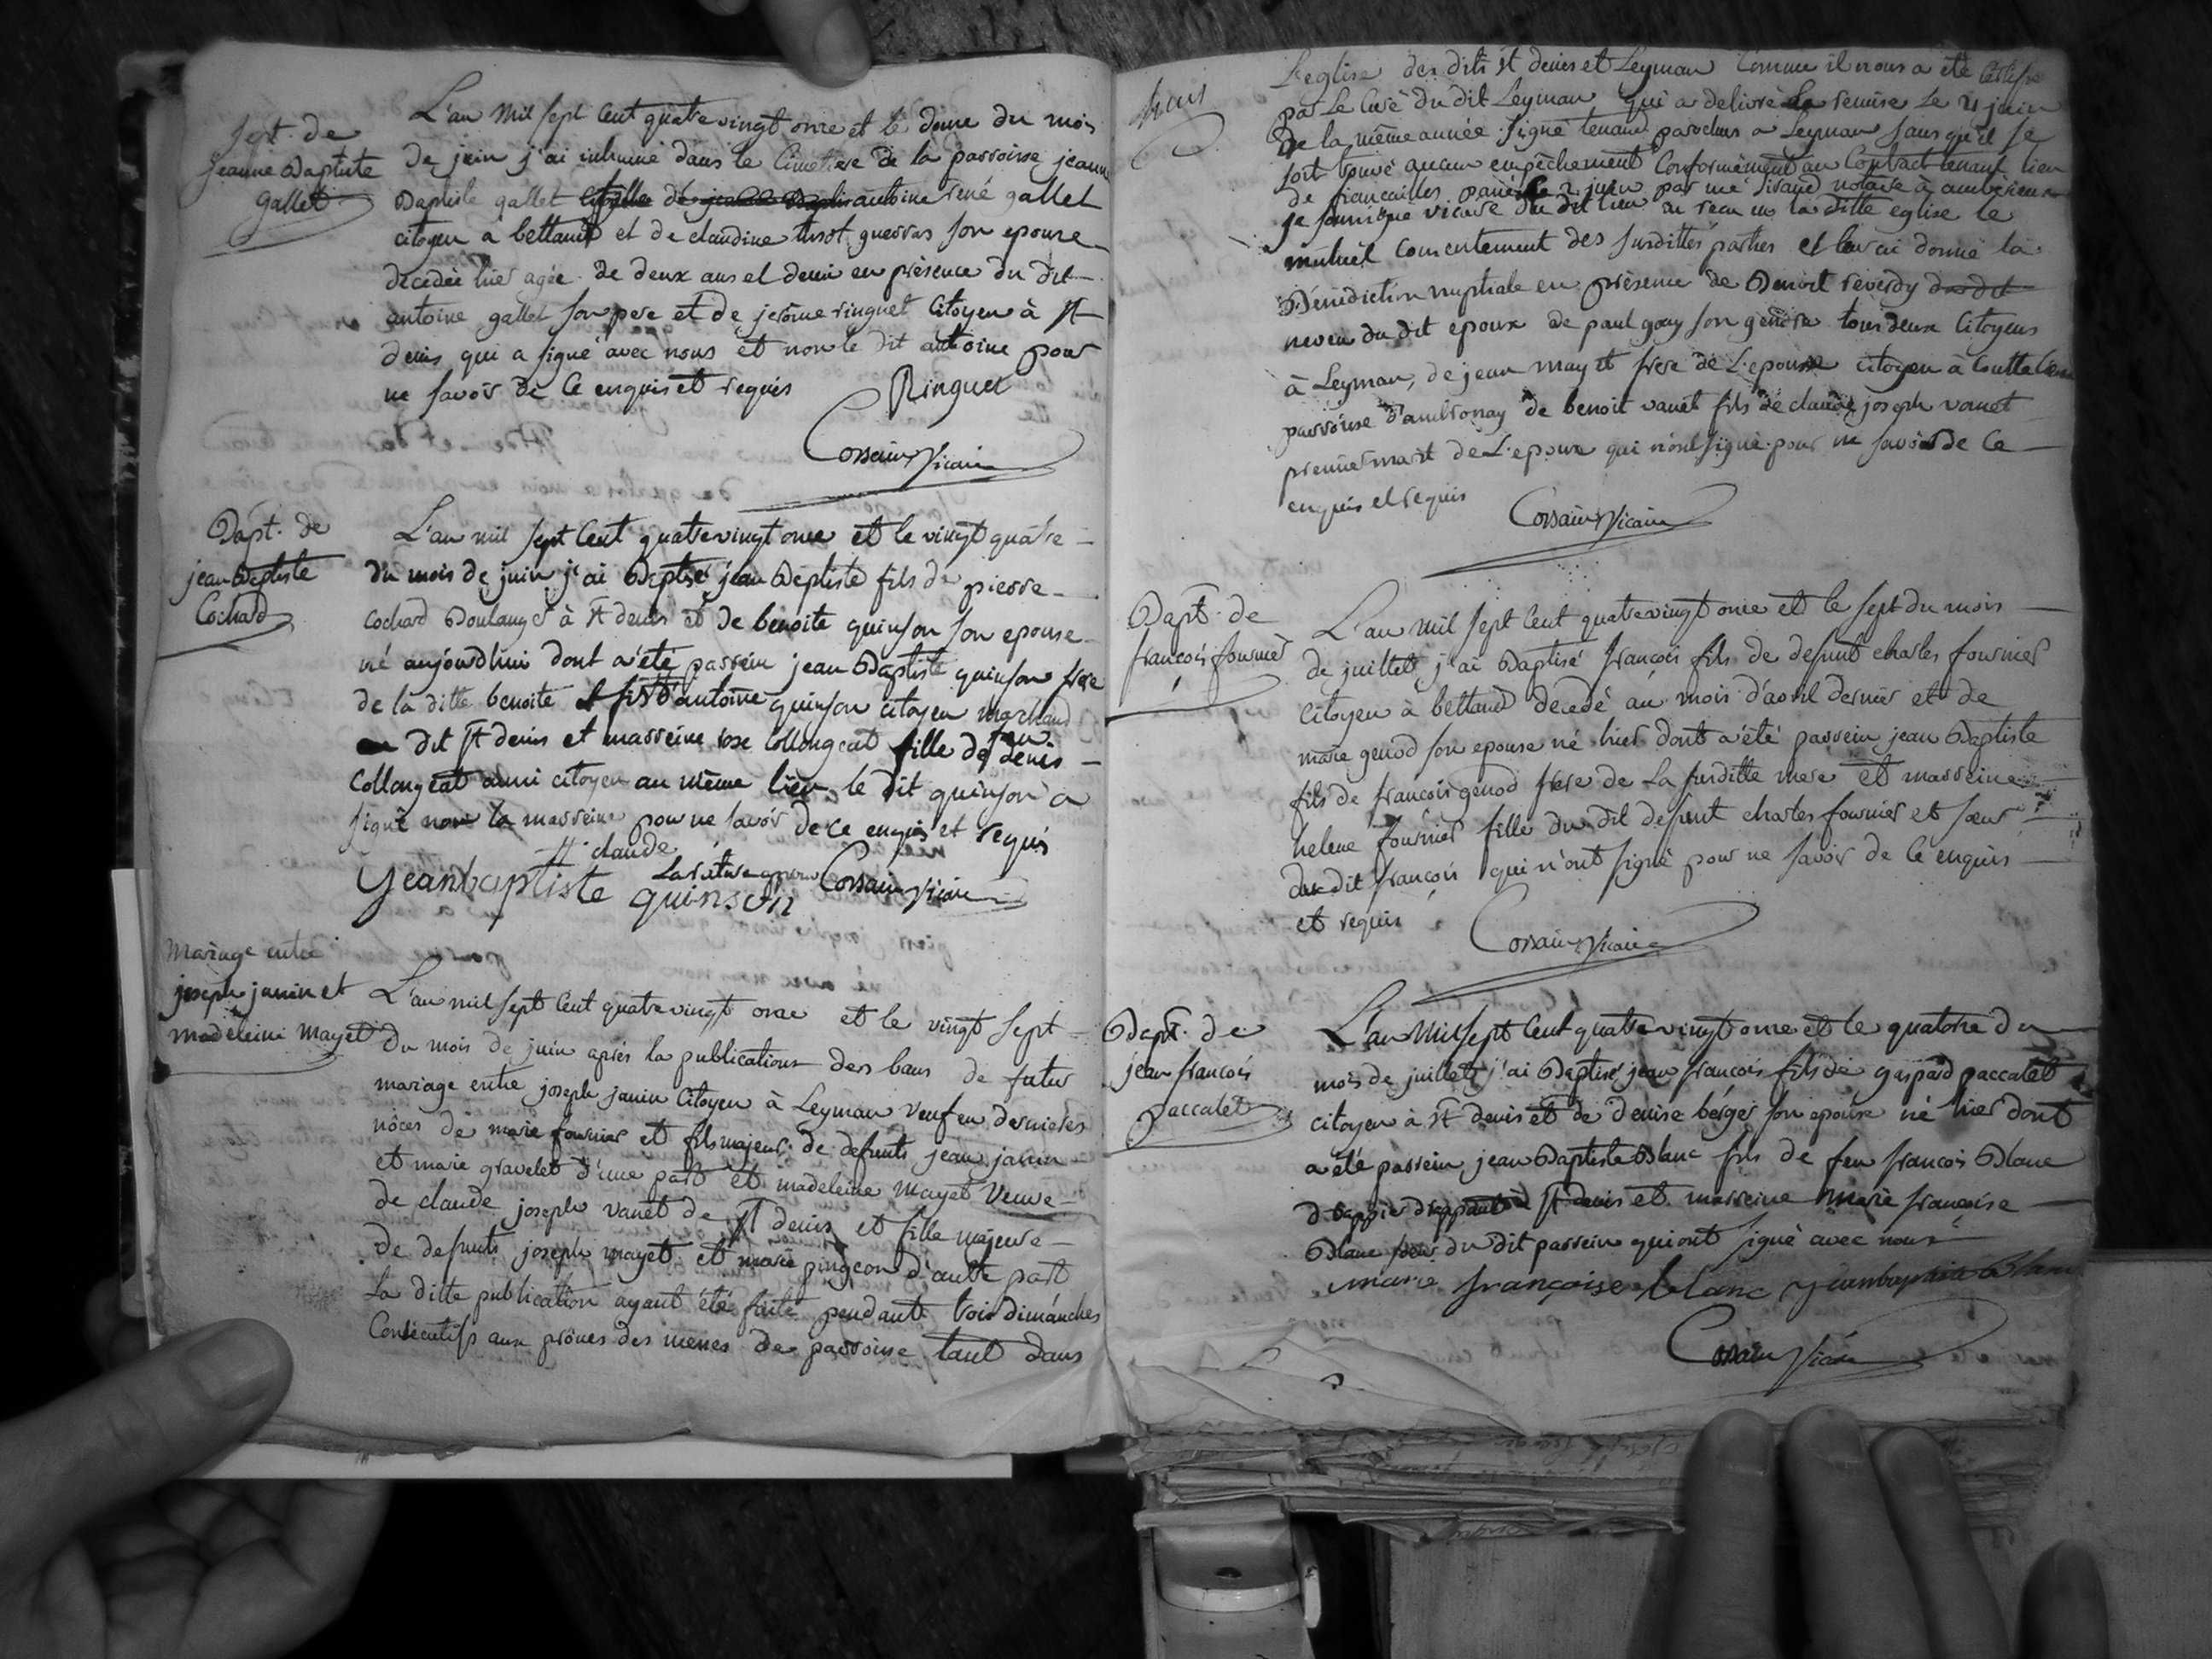 Sept. de
jeanne Baptiste
Gallet
L'an mil sept cent quatre vingt onze et le douze du mois
de juin j'ai inhumé dans le Cimetiere de la parroisse jeanne
Baptiste gallet fille de antoine rené gallet
citoyen a bettand et de claudine son epouse
decedée hier agée de deux ans et demi en présence du dit
antoine gallet son pere et de jerôme ringuet Citoyen à st
denis qui a signé avec nous et non le dit antoine pour
ne savoir de ce enquis et requis
Ringuet
Corsain Vicaire
Bapt. de
jean Baptiste
Cochard
L'an mil sept cent quatre vingt onze et le vingt quatre
du mois de juin j'ai Baptisé jean Baptiste fils de pierre
Cochard Boulanger à st denis et de benoite quinson son epouse
né aujourdhui dont a été parrein jean Baptiste quinson frere
de la ditte benoite et fils d'antoine quinson citoyen marchand
dit st denis et marreine rose Collongeat fille de feu denis
Collongeat aussi citoyen au même lieu le dit quinson a
signé non la marreine pour ne savoir de ce enquis et requis
st. claude
Jeanbaptiste quinson
Corsain Vicaire
Mariage entre
joseph janin et
madeleine mayet
L'an mil sept cent quatre vingt onze et le vingt sept
du mois de juin après la publication des bans de futur
mariage entre joseph janin Citoyen à Leyman veuf en dernieres
nôces de marie fournier et fils majeur de defunts jean janin
et marie gravelet d'une part et madeleine mayet veuve
de claude joseph vanet de st denis et fille majeure
de defunts joseph mayet et marie pingeon d'autre part
La ditte publication ayant été faite pendant trois dimanches
Consécutifs aux prônes des messes de parroisse tant dans
L'eglise des dits st denis et Leyman Comme il nous a été
par Le Curé du dit Leyman qui a delivré La remise Le 21 juin
de la même année signé tenand parochus a Leyman sans qu'il se
soit trouvé aucun empêchement Conformément au Contract tenant lieu
de fiancailles passé le 2 juin par me notaire à
je soussigné vicaire du dit lieu ai recu en la ditte eglise le
mutuel consentement des susdittes parties et leur ai donné la
Bénédiction nuptiale en présence de Benoit reverdy
neveu du dit epoux de paul goay son gendre tous deux Citoyens
à Leyman, de jean mayet frere de L'epouse citoyen à
parroisse d'ambronay de benoit vanet fils de claude joseph vanet
premier mari de L'epouse qui n'ont signé pour ne savoir de ce
enquis et requis
Corsain Vicaire
Bapt. de
francois fournier
L'an mil sept cent quatre vingt onze et le sept du mois
de juillet j'ai Baptisé francois fils de defunt charles fournier
Citoyen à bettand decedé au mois d'avril dernier et de
marie genod son epouse né hier dont a été parrein jean Baptiste
fils de francois genod frere de La susditte mere et marreine
helene fournier fille du dit defunt charles fournier et sœur
du dit francois qui n'ont signé pour ne savoir de ce enquis
et requis
Corsain Vicaire
Bapt. de
jean francois
paccalet
L'an mil sept cent quatre vingt onze et le quatorze du
mois de juillet j'ai Baptisé jean francois fils de gaspard paccalet
citoyen à st denis et de denise berger son epouse né hier dont
a été parrein jean Baptiste Blanc fils de feu francois Blanc
st denis et marreine marie francoise
Blanc sœur du dit parrein qui ont signé avec nous
marie françoise blanc jeanbaptiste Blanc
Corsain Vicaire